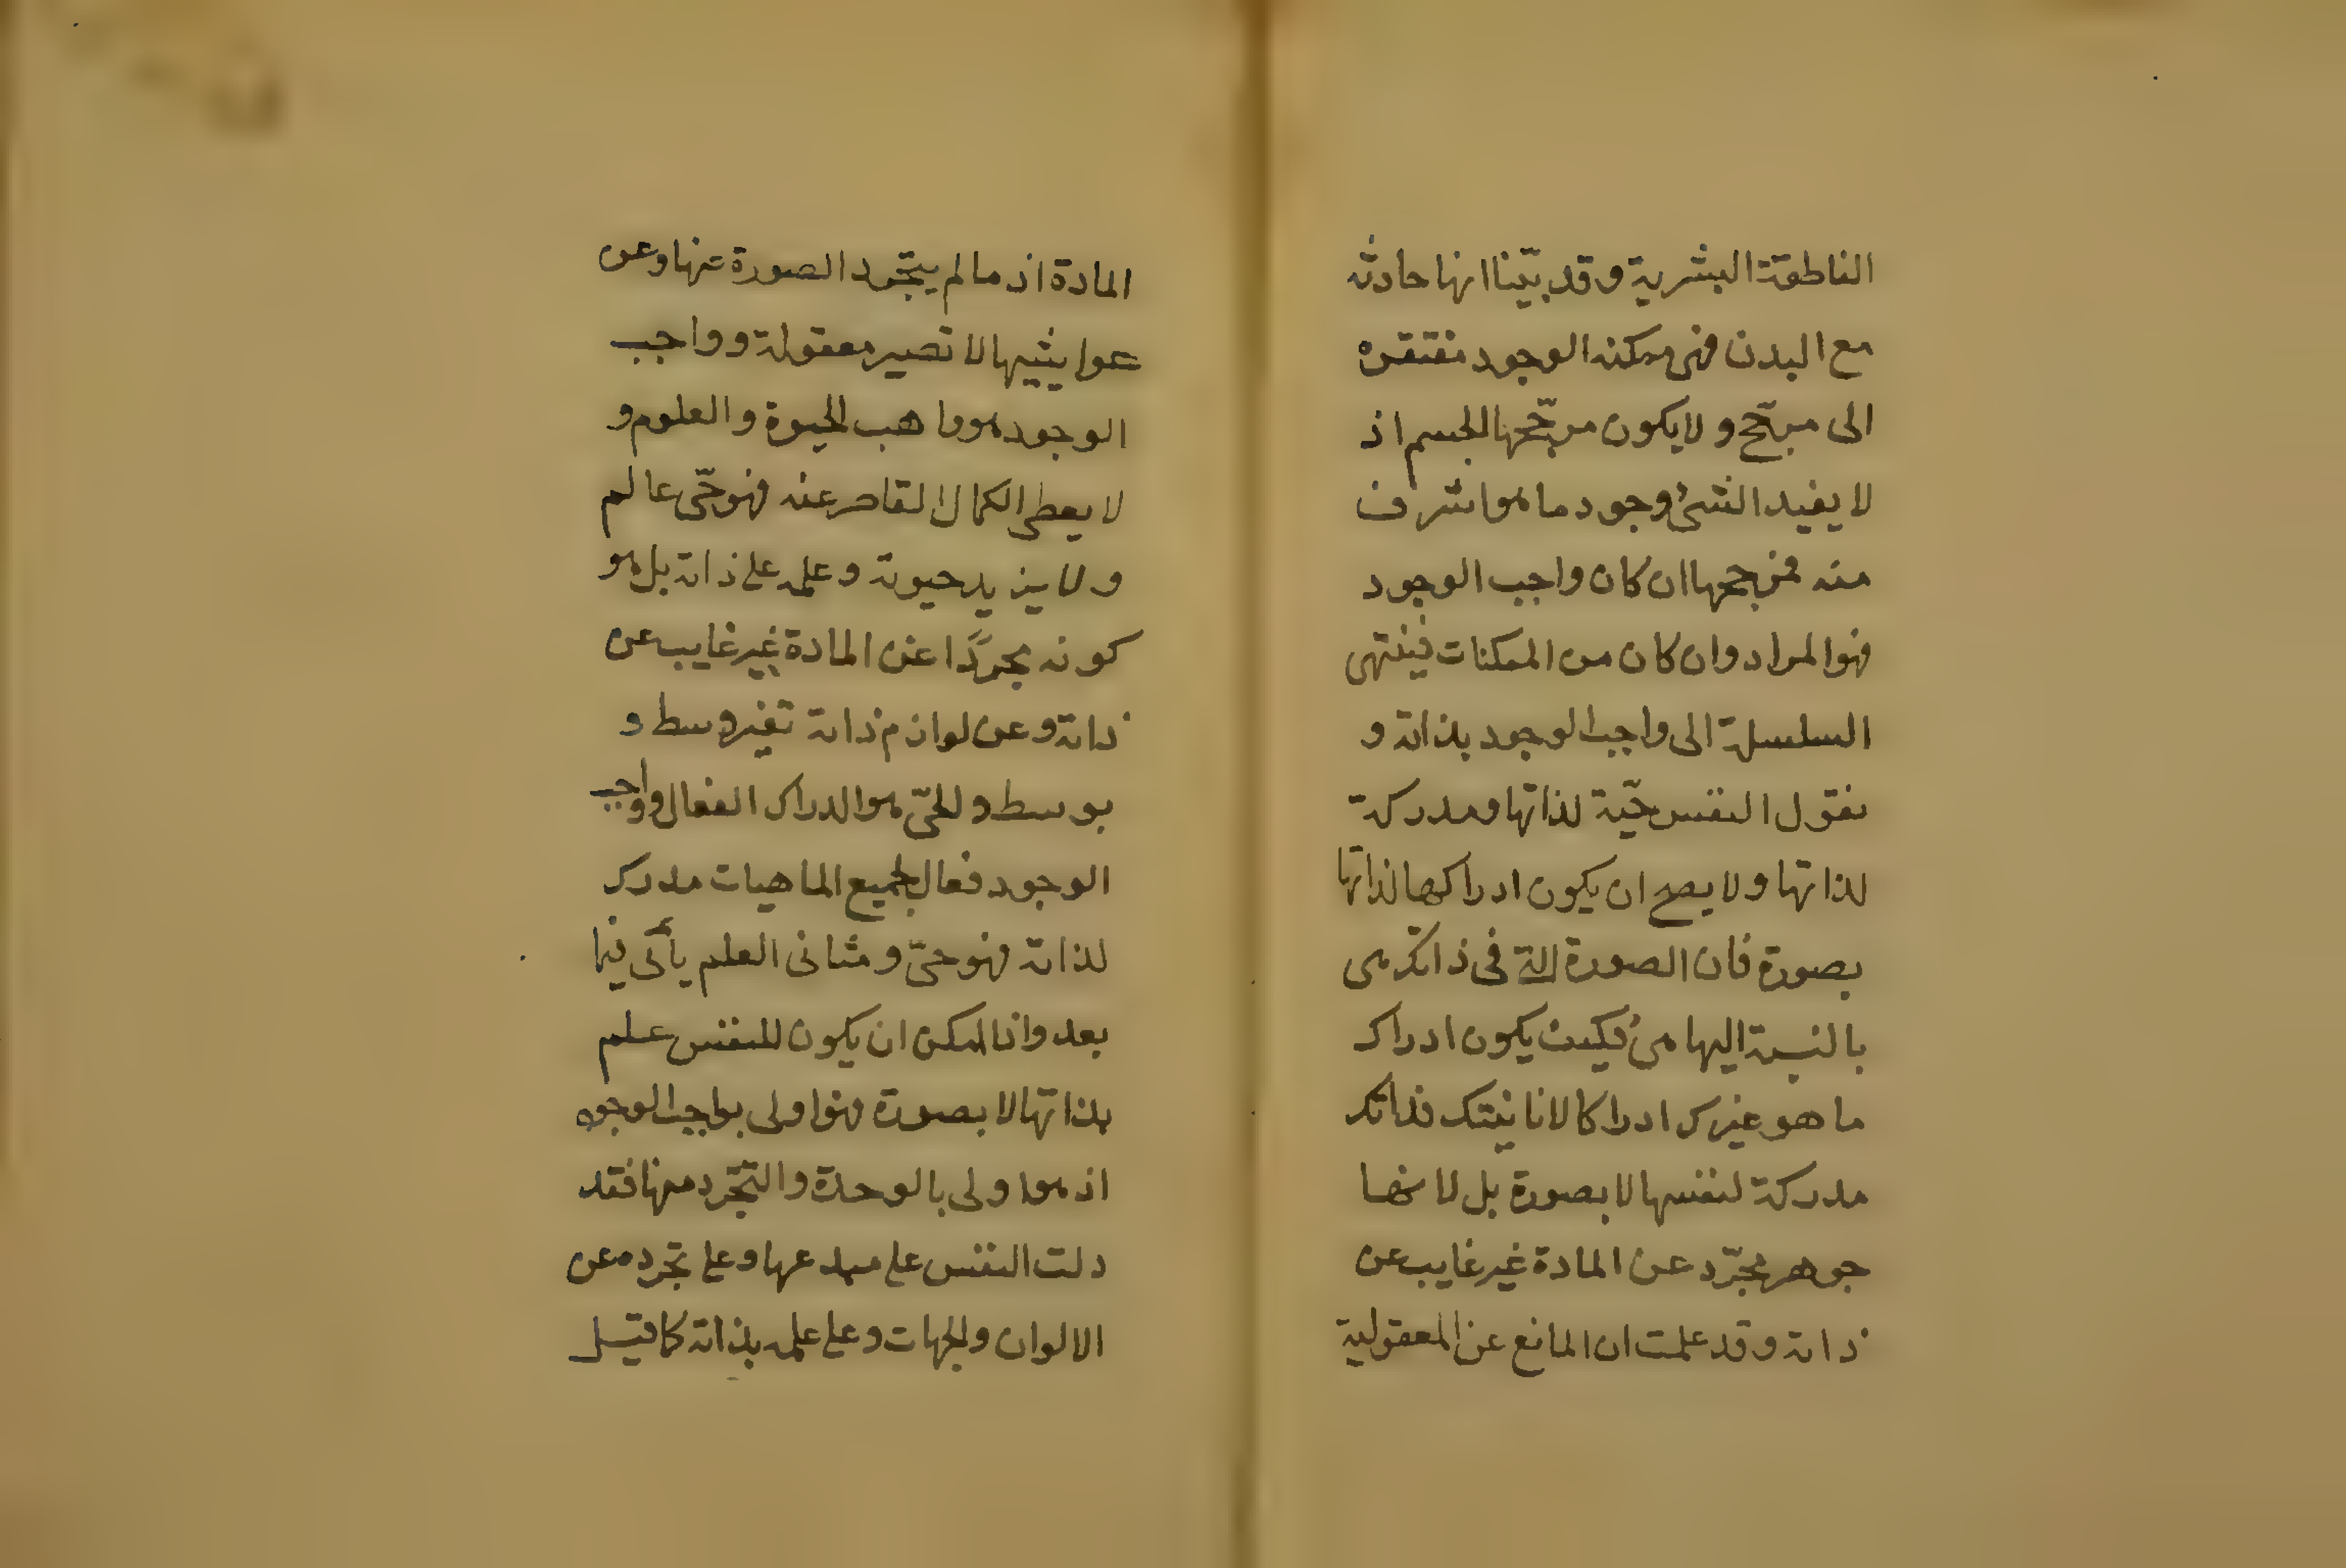 الناطقة البشرية وقد بيّنا انها حادثه
مع البدن فهى ممكنه الوجود مفتقره
الى مرجّح ولا يكون مرجّحها الجسم اذ
لا يفيد الشئ وجود ما هو اشرف
منه فمرجحها ان كان واجب الوجود
فهو المراد وان كان من الممكنات فينتهى
السلسلة الى واجب الوجود بذاته و
نقول النفس حيّة لذاتها ومدركة
لذاتها ولا يصح ان يكون ادراكها لذاتها
بصورة فان الصورة التى فى ذاتك هى
بالنسبة اليها هى فكيف يكون ادراك
ما هو غيرك ادراكا لانانيتك فذاتك
مدركة لنفسها لا بصورة بل لانها
جوهر مجرّد عن المادة غير غايب عن
ذاته وقد علمت ان المانع عن المعقولية
المادة اذ ما لم يتجّرد الصورة عنها وعن
غواشيها لا تصير معقولة وواجب
الوجود هو واهب الحيوة والعلوم و
لا يعطى الكمال القاصر عنه فهو حّى عالم
ولا يزيد حيوته وعلمه على ذاته بل هو
كونه مجردًا عن المادة غير غايب عن
ذاته وعن لوازم ذاته بغير وسط و
بوسط والحىّ هو الدراك الفعال وواجب
الوجود فعال لجميع الماهيات مدرك
لذاته فهو حىّ ومثانى العلم يأتى فيما
بعد واذا امكن ان يكون للنفس علم
بذاتها لا بصورة فهو اولى بواجب الوجود
اذ هو اولى بالوحدة والتجّرد منها فقد
دلت النفس على مبدعها وعلى تجرده عن
الالوان والجهات وعلى علمه بذاته كما قيل